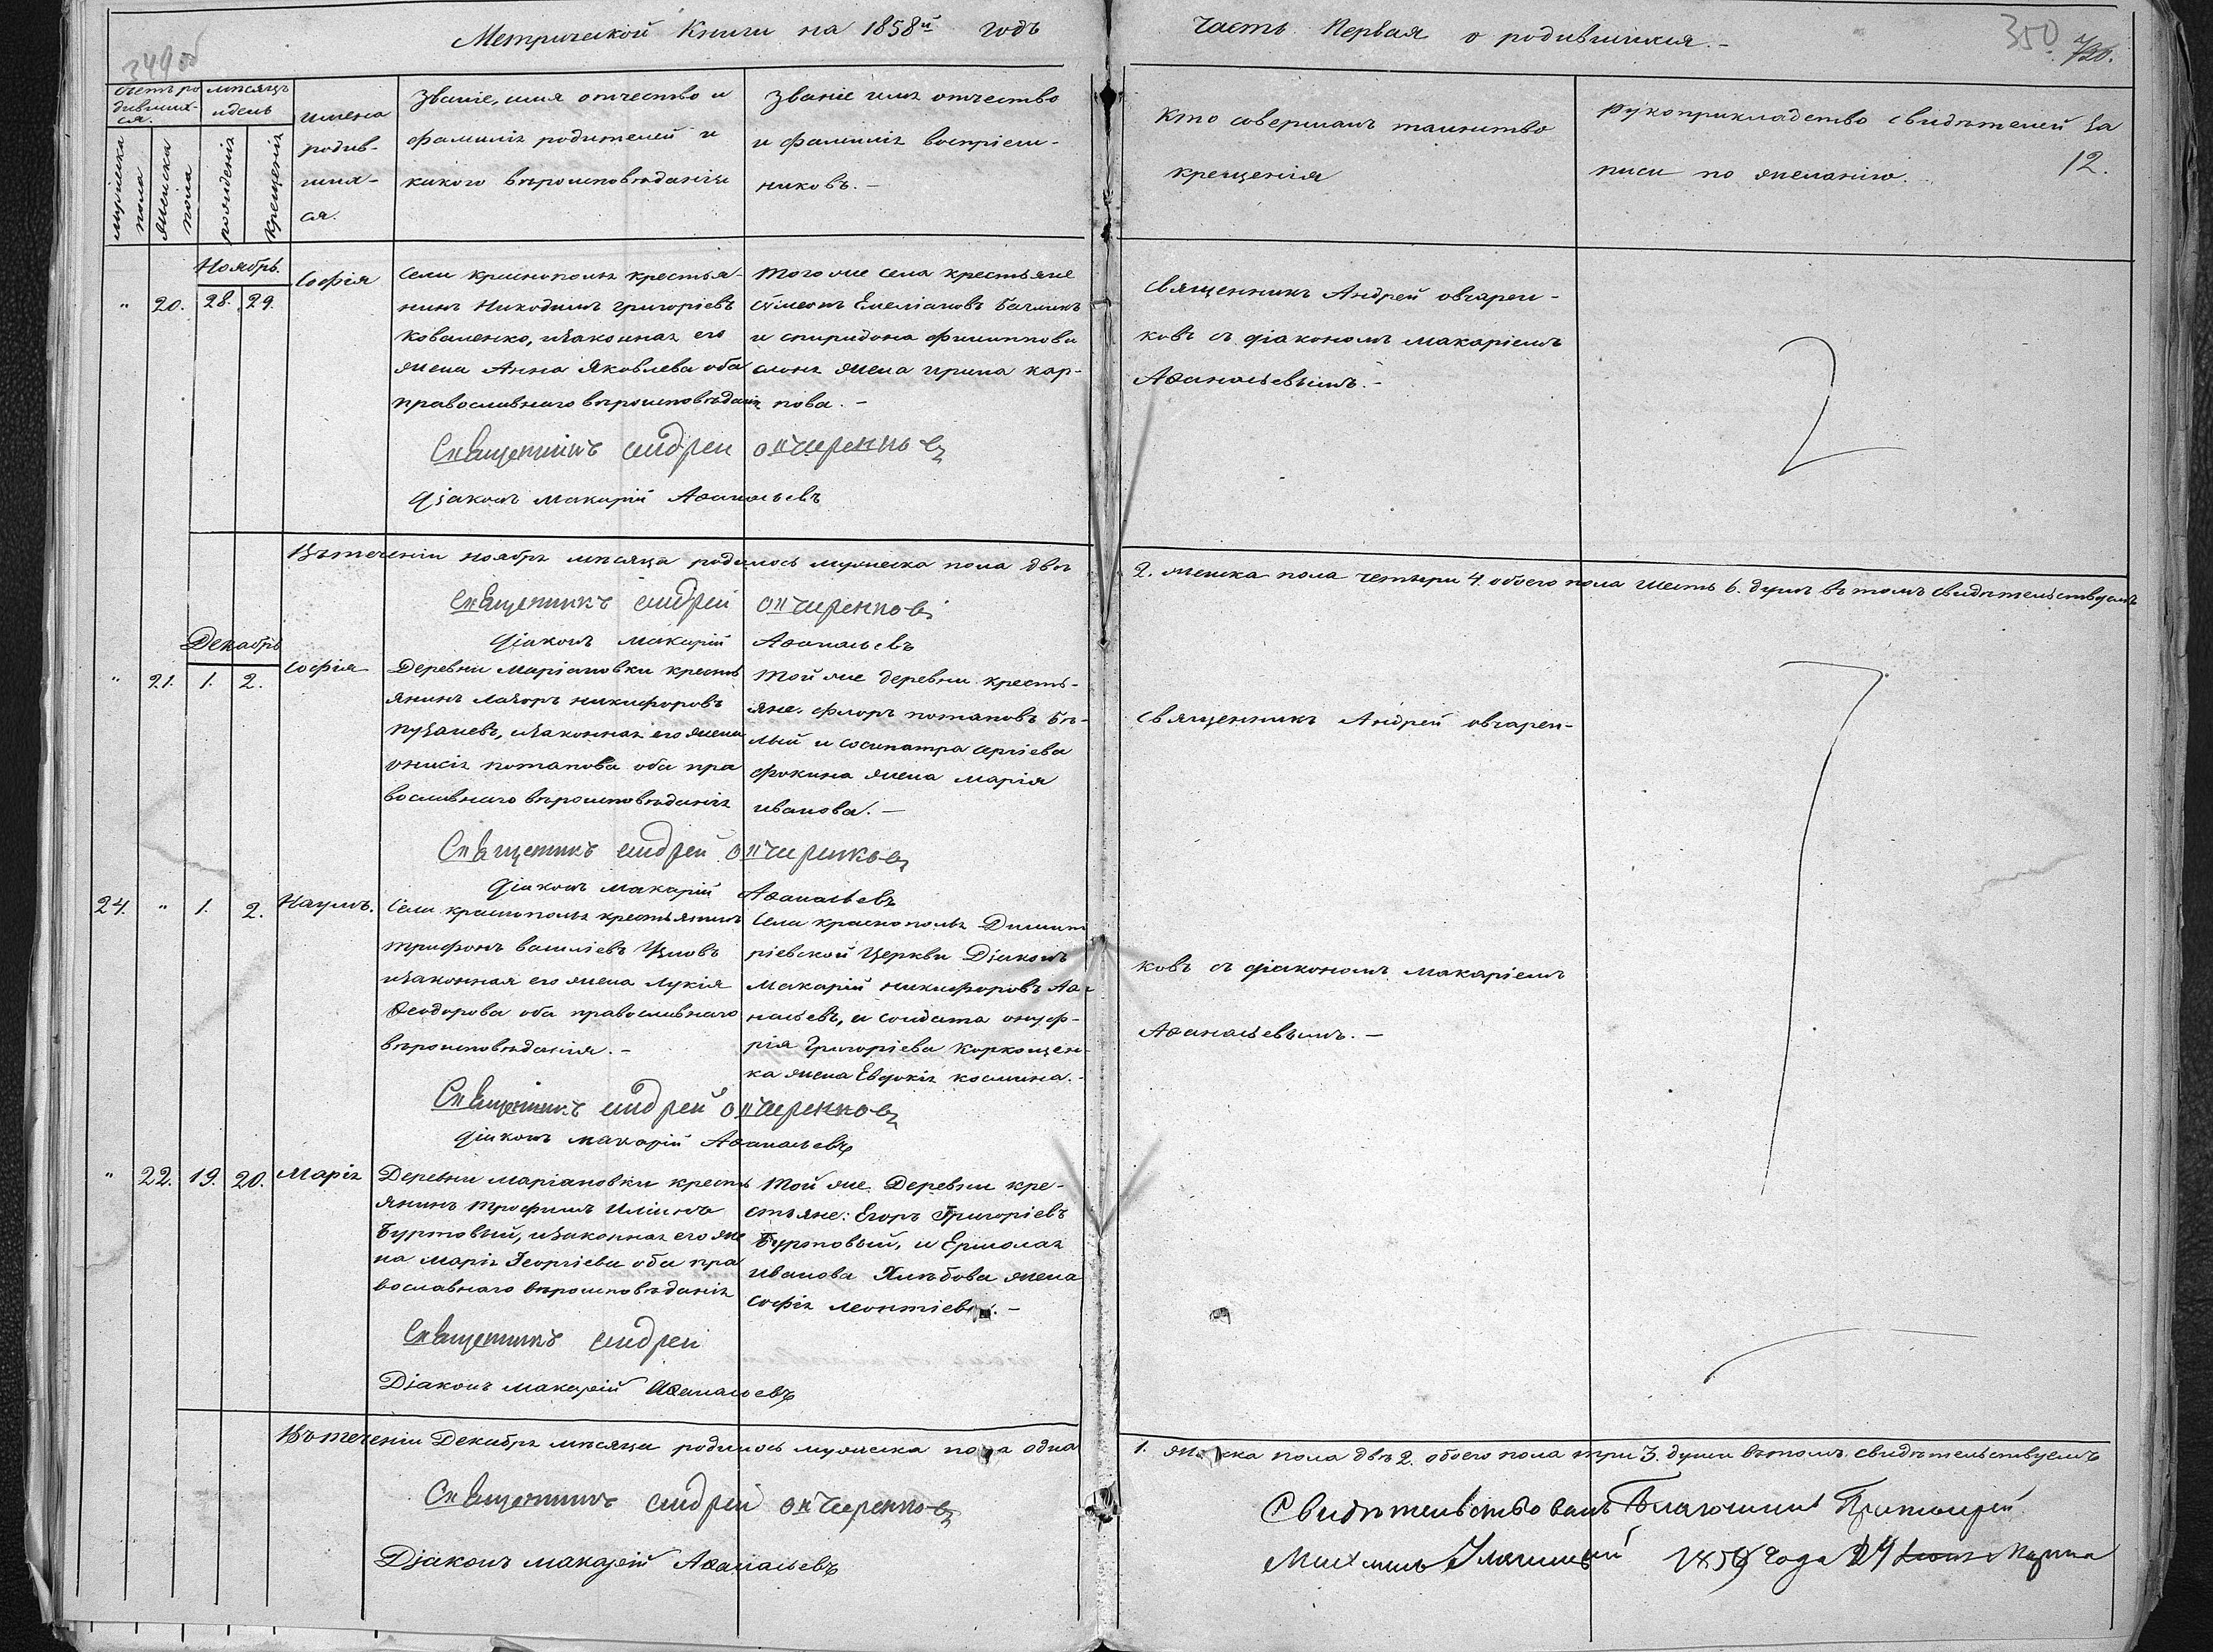 Метрической Книги на 1858й годъ
Часть Первая о родившихся.-
349об
350.
счетъ ро
дивших-
ся.
мѣсяцъ
и день
мужеска
пола
женска
пола
рожденія
крещенія
имена
родив-
ших-
ся.
Званіе, имя отчество и
фамилія родителей и
какого вѣроисповѣданія
Званіе имя отчество
и фамилія воспріем-
никовъ.-
Кто совершалъ таинство
крещенія
Рукоприкладство свидѣтелей за
писи по желанію.
12.
Ноябрь.
" 20. 28. 29.
Софія
Села Краснополья крестья-
нинъ Никодимъ Григоріевъ
Коваленко, изаконная его
жена Анна Яковлева оба
православнаго вѣроисповѣданія
Того же села крестьяне
Симеонъ Емеліановъ
и Спиридона Филиппова
жена Ирина Кар-
пова.-
Священникъ Андрей Овчарен-
ковъ съ діакономъ Макаріемъ
Аѳанасьевымъ.-
2
Священникъ Андрей Овчаренковъ
Діаконъ Макарій Аѳанасьевъ
Въ теченіи ноября мѣсяца родилось мужеска пола двѣ
2. женска пола четыри 4. обоего пола шесть 6. душъ въ томъ свидѣтельствуемъ
Священникъ Андрей Овчаренковъ
Діаконъ Макарій Аѳанасьевъ
Декабрь
" 21. 1. 2.
Софія
Деревни Маріановки кресть
янинъ Никифоровъ
изаконная его жена
Потапова оба пра
вославнаго вѣроисповѣданія
Той же деревни кресть-
яне: Флоръ Потаповъ Бѣ-
лый и Сосипатра Сергіева
Фокина жена Марія
Иванова.-
Священникъ Андрей Овчарен-
Священникъ Андрей Овчаренковъ
Діаконъ Макарій Аѳанасьевъ
24. " 1. 2.
Наумъ.
Села Краснополья крестьянинъ
Трифонъ Василіевъ
изаконная его жена Лукія
Ѳеодорова оба православнаго
вѣроисповѣданія.-
Села Краснополья Димит
ріевской Церкви Діаконъ
Макарій Никифоровъ Аѳа
насьевъ, и солдата Онуф-
рія Григоріева
ка жена Евдокія Космина.-
ковъ съ діакономъ Макаріемъ
Аѳанасьевымъ.-
Священникъ Андрей Овчаренковъ
Діаконъ Макарій Аѳанасьевъ
" 22. 19. 20.
Марія
Деревни Маріановки кресть
янинъ Трофимъ Ильинъ
Буртовый, изаконная его же
на Марія Георгіева оба пра
вославнаго вѣроисповѣданія
Той же Деревни кре-
стьяне: Егоръ Григоріевъ
Буртовый, и Ермолая
Иванова Хлѣбова жена
Софія Леонтіева.-
Священникъ Андрей
Діаконъ Макарій Аѳанасьевъ
Въ теченіи Декабря мѣсяца родилось мужеска пола одна
1. женска пола двѣ 2. обоего пола три 3. души въ томъ свидѣтельствуемъ
Священникъ Андрей Овчаренковъ
Діаконъ Макарій Аѳанасьевъ
Свидѣтельствовалъ Благочинный Протоіерей
Михаилъ 1859 года 24 Марта